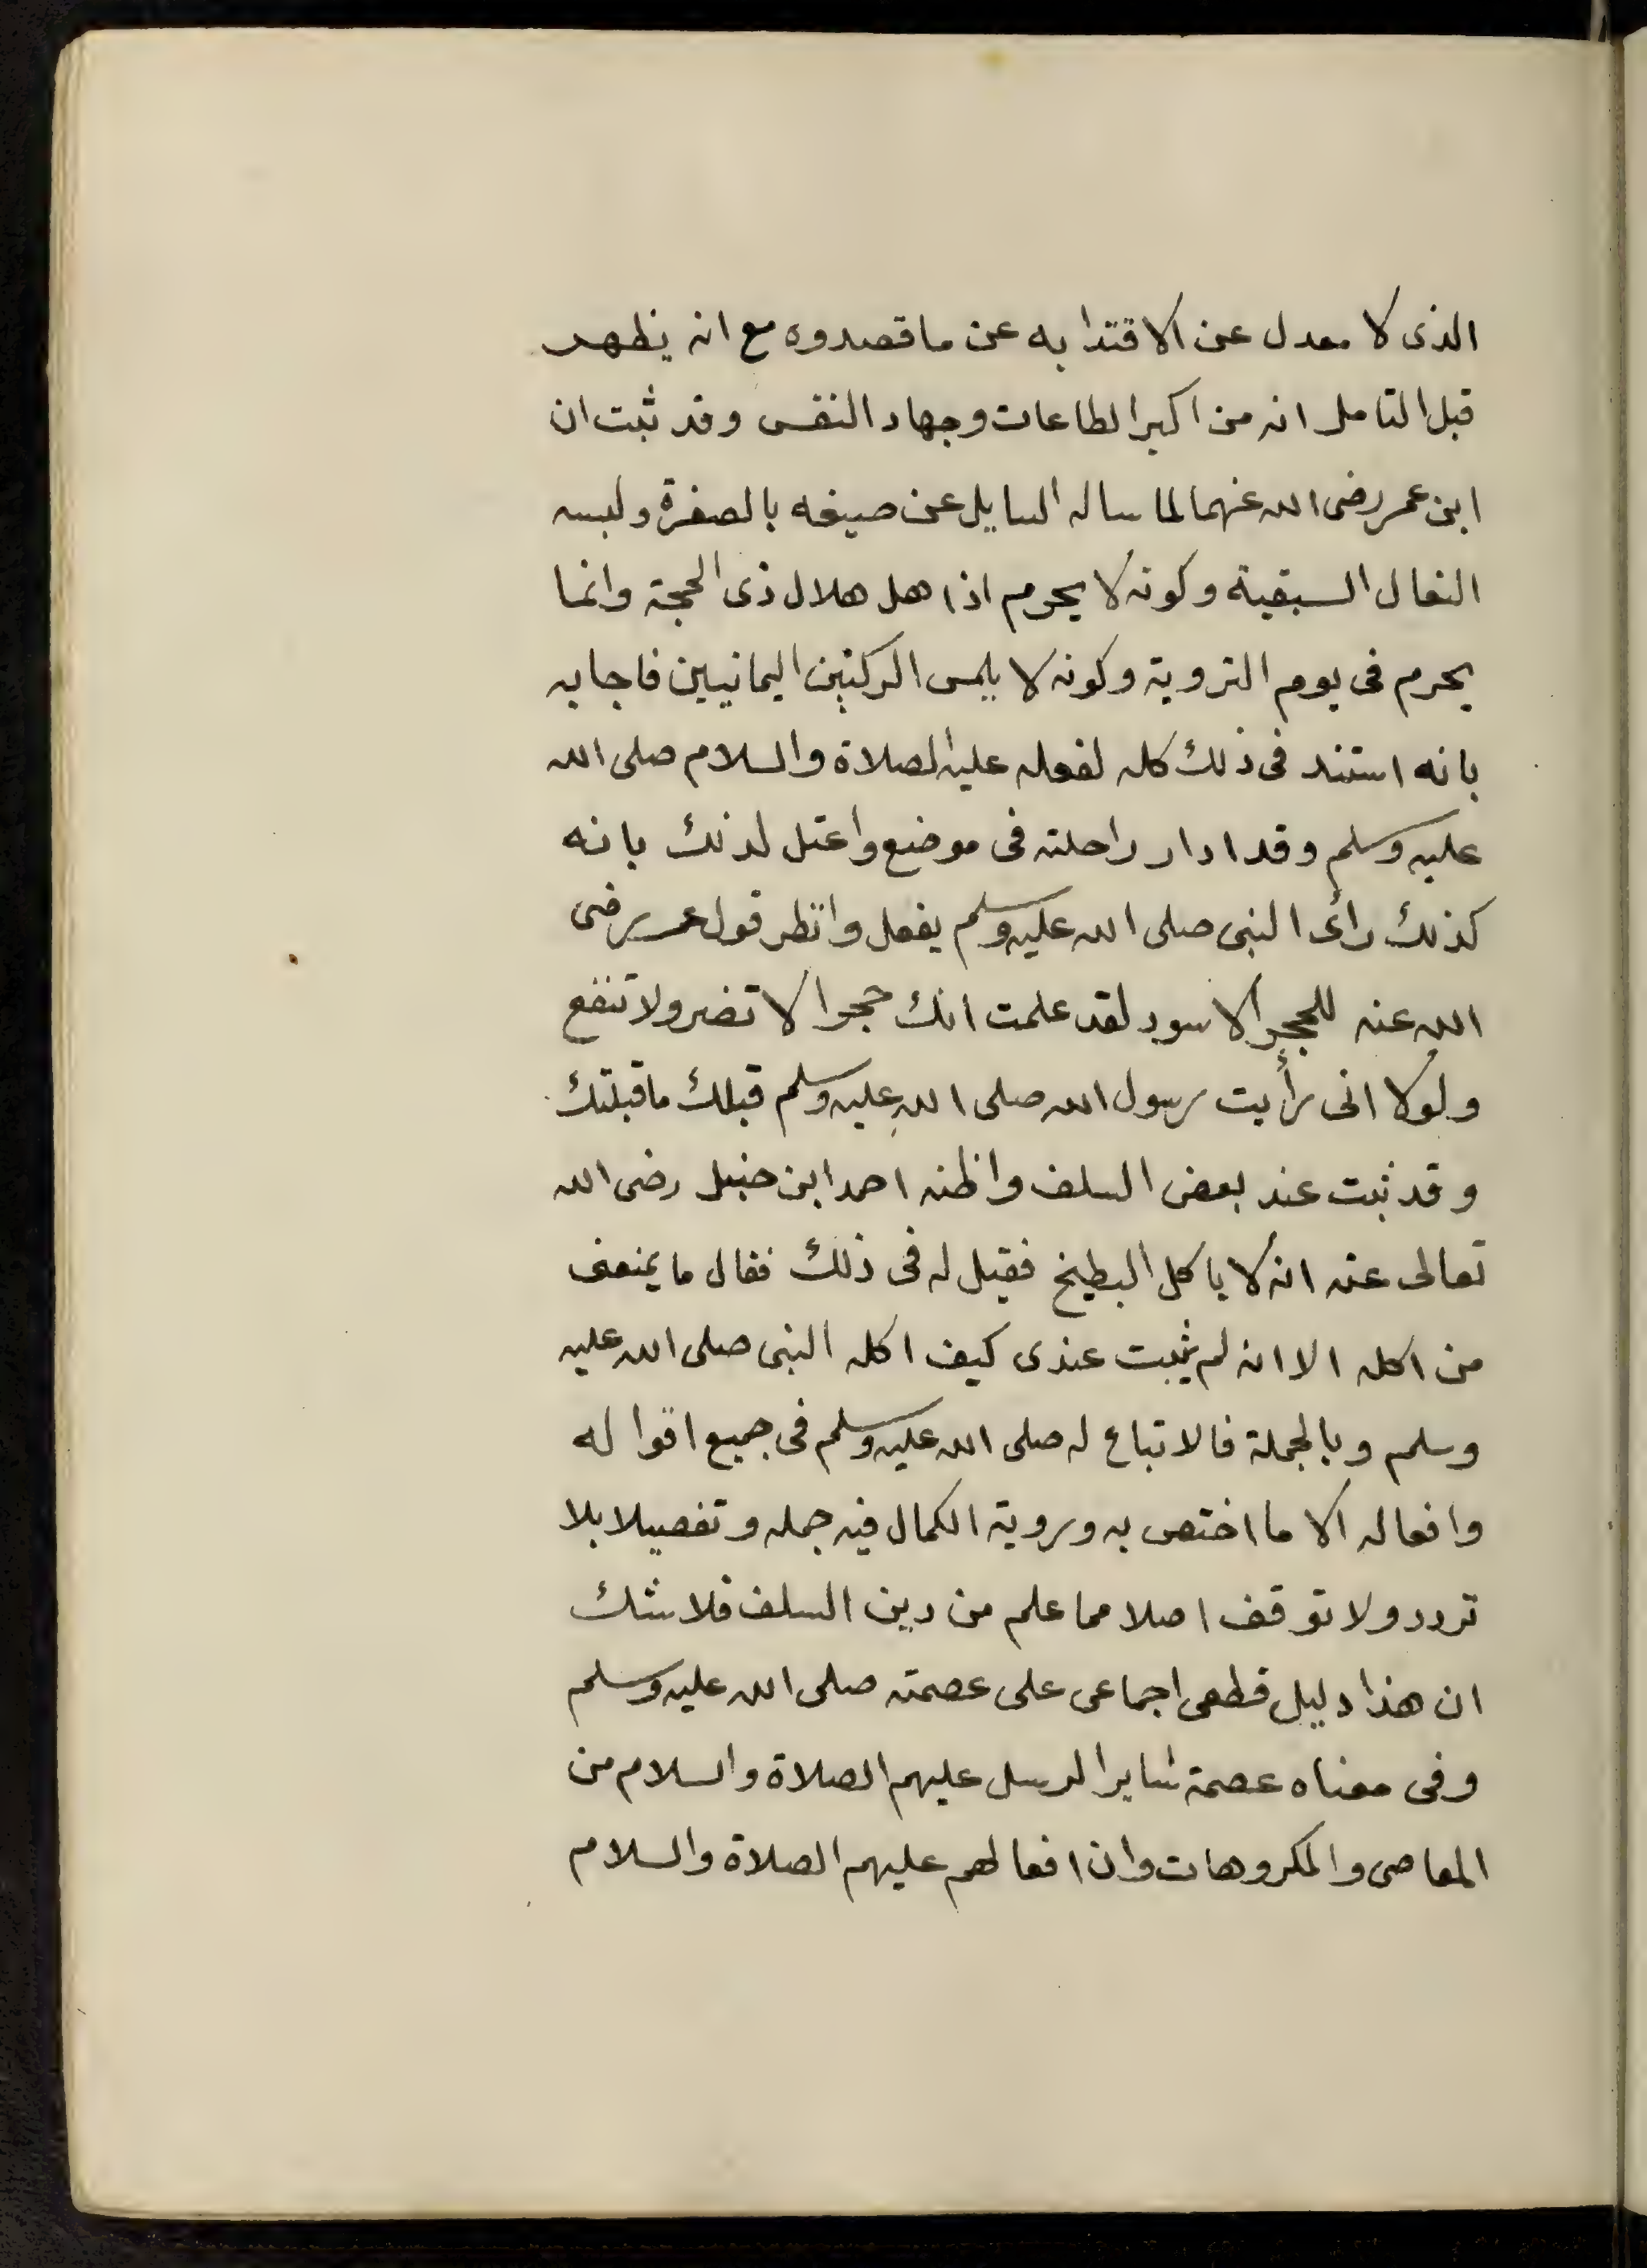 الذى لا معدل عن الاقتدا به عن ما قصدوه مع انه يظهر
قبل التامل انه من اكبر الطاعات وجهاد النفس وقد ثبت ان
ابن عمر رضى الله عنهما لما ساله السايل عن صيغه بالصفرة ولبسه
النعال السبقية وكونه لا يحرم اذا هل هلال ذى الحجة وانما
يحرم فى يوم التروية وكونه لا يلمس الركنين اليمانيين فاجابه
بانه استند فى ذلك كله لفعله عليه الصلاة والسلام صلى الله
عليه وسلم وقد ادار راحلته فى موضع واعتل لذلك بانه
كذلك رأى النبى صلى الله عليه وسلم يفعل وانظر قول عمر رضى
الله عنه للحجر الاسود لقد علمت انك حجرا لا تضر ولا تنفع
ولولا انى رأيت رسول الله صلى الله عليه وسلم قبلك ما قبلتك
وقد ثبت عند بعض السلف واظنه احمد ابن حنبل رضى الله
تعالى عنه انه لا ياكل البطيخ فقيل له فى ذلك فقال ما يمنعنى
من اكله الا انه لم يثبت عندى كيف اكله النبى صلى الله عليه
وسلم وبالجملة فالاتباع له صلى الله عليه وسلم فى جميع اقواله
وافعاله الا ما اختص به وروية الكمال فيه جمله وتفصيلا بلا
تردد ولا توقف اصلا مما علم من دين السلف فلا شك
ان هذا دليل قطعى اجماعى على عصمته صلى الله عليه وسلم
وفى معناه عصمة سٔاير الرسل عليهم الصلاة والسلام من
المعاصى والمكروهات وان افعالهم عليهم الصلاة والسلام